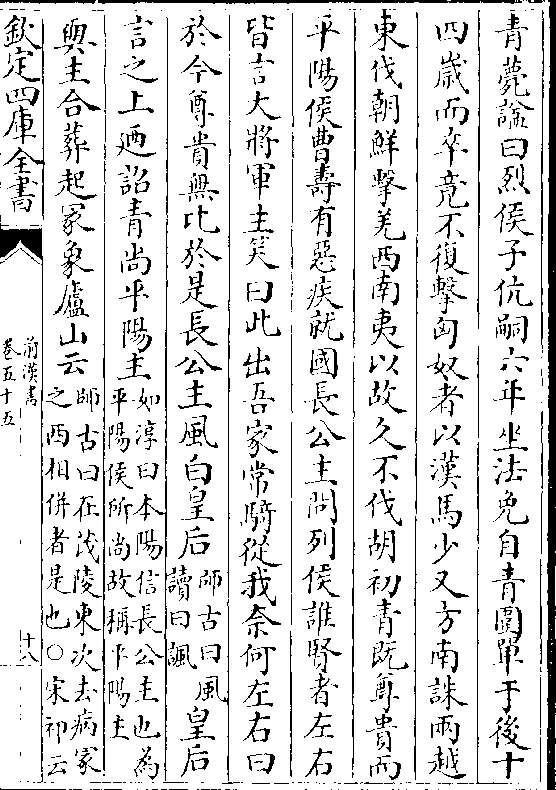 青薨諡曰烈侯子伉嗣六年坐法免自青圍單于後十
四歲而卒竟不復擊匈奴者以漢馬少又方南誅兩越
東伐朝鮮擊羌西南夷以故久不伐胡初青既尊貴而
平陽侯曹壽有惡疾就國長公主問列侯誰賢者左右
皆言大將軍主笑曰此出吾家常騎從我奈何左右曰
於今尊貴無比於是長公主風白皇后師古曰風讀曰諷皇后
言之上廼詔青尚平陽主如淳曰本陽信長公主也為平陽侯所尚故稱平陽主
與主合葬起冢象廬山云師古曰在茂陵東次去病冢之西相併者是也○宋祁云
欽定四庫全書
前漢書
卷五十五
十八